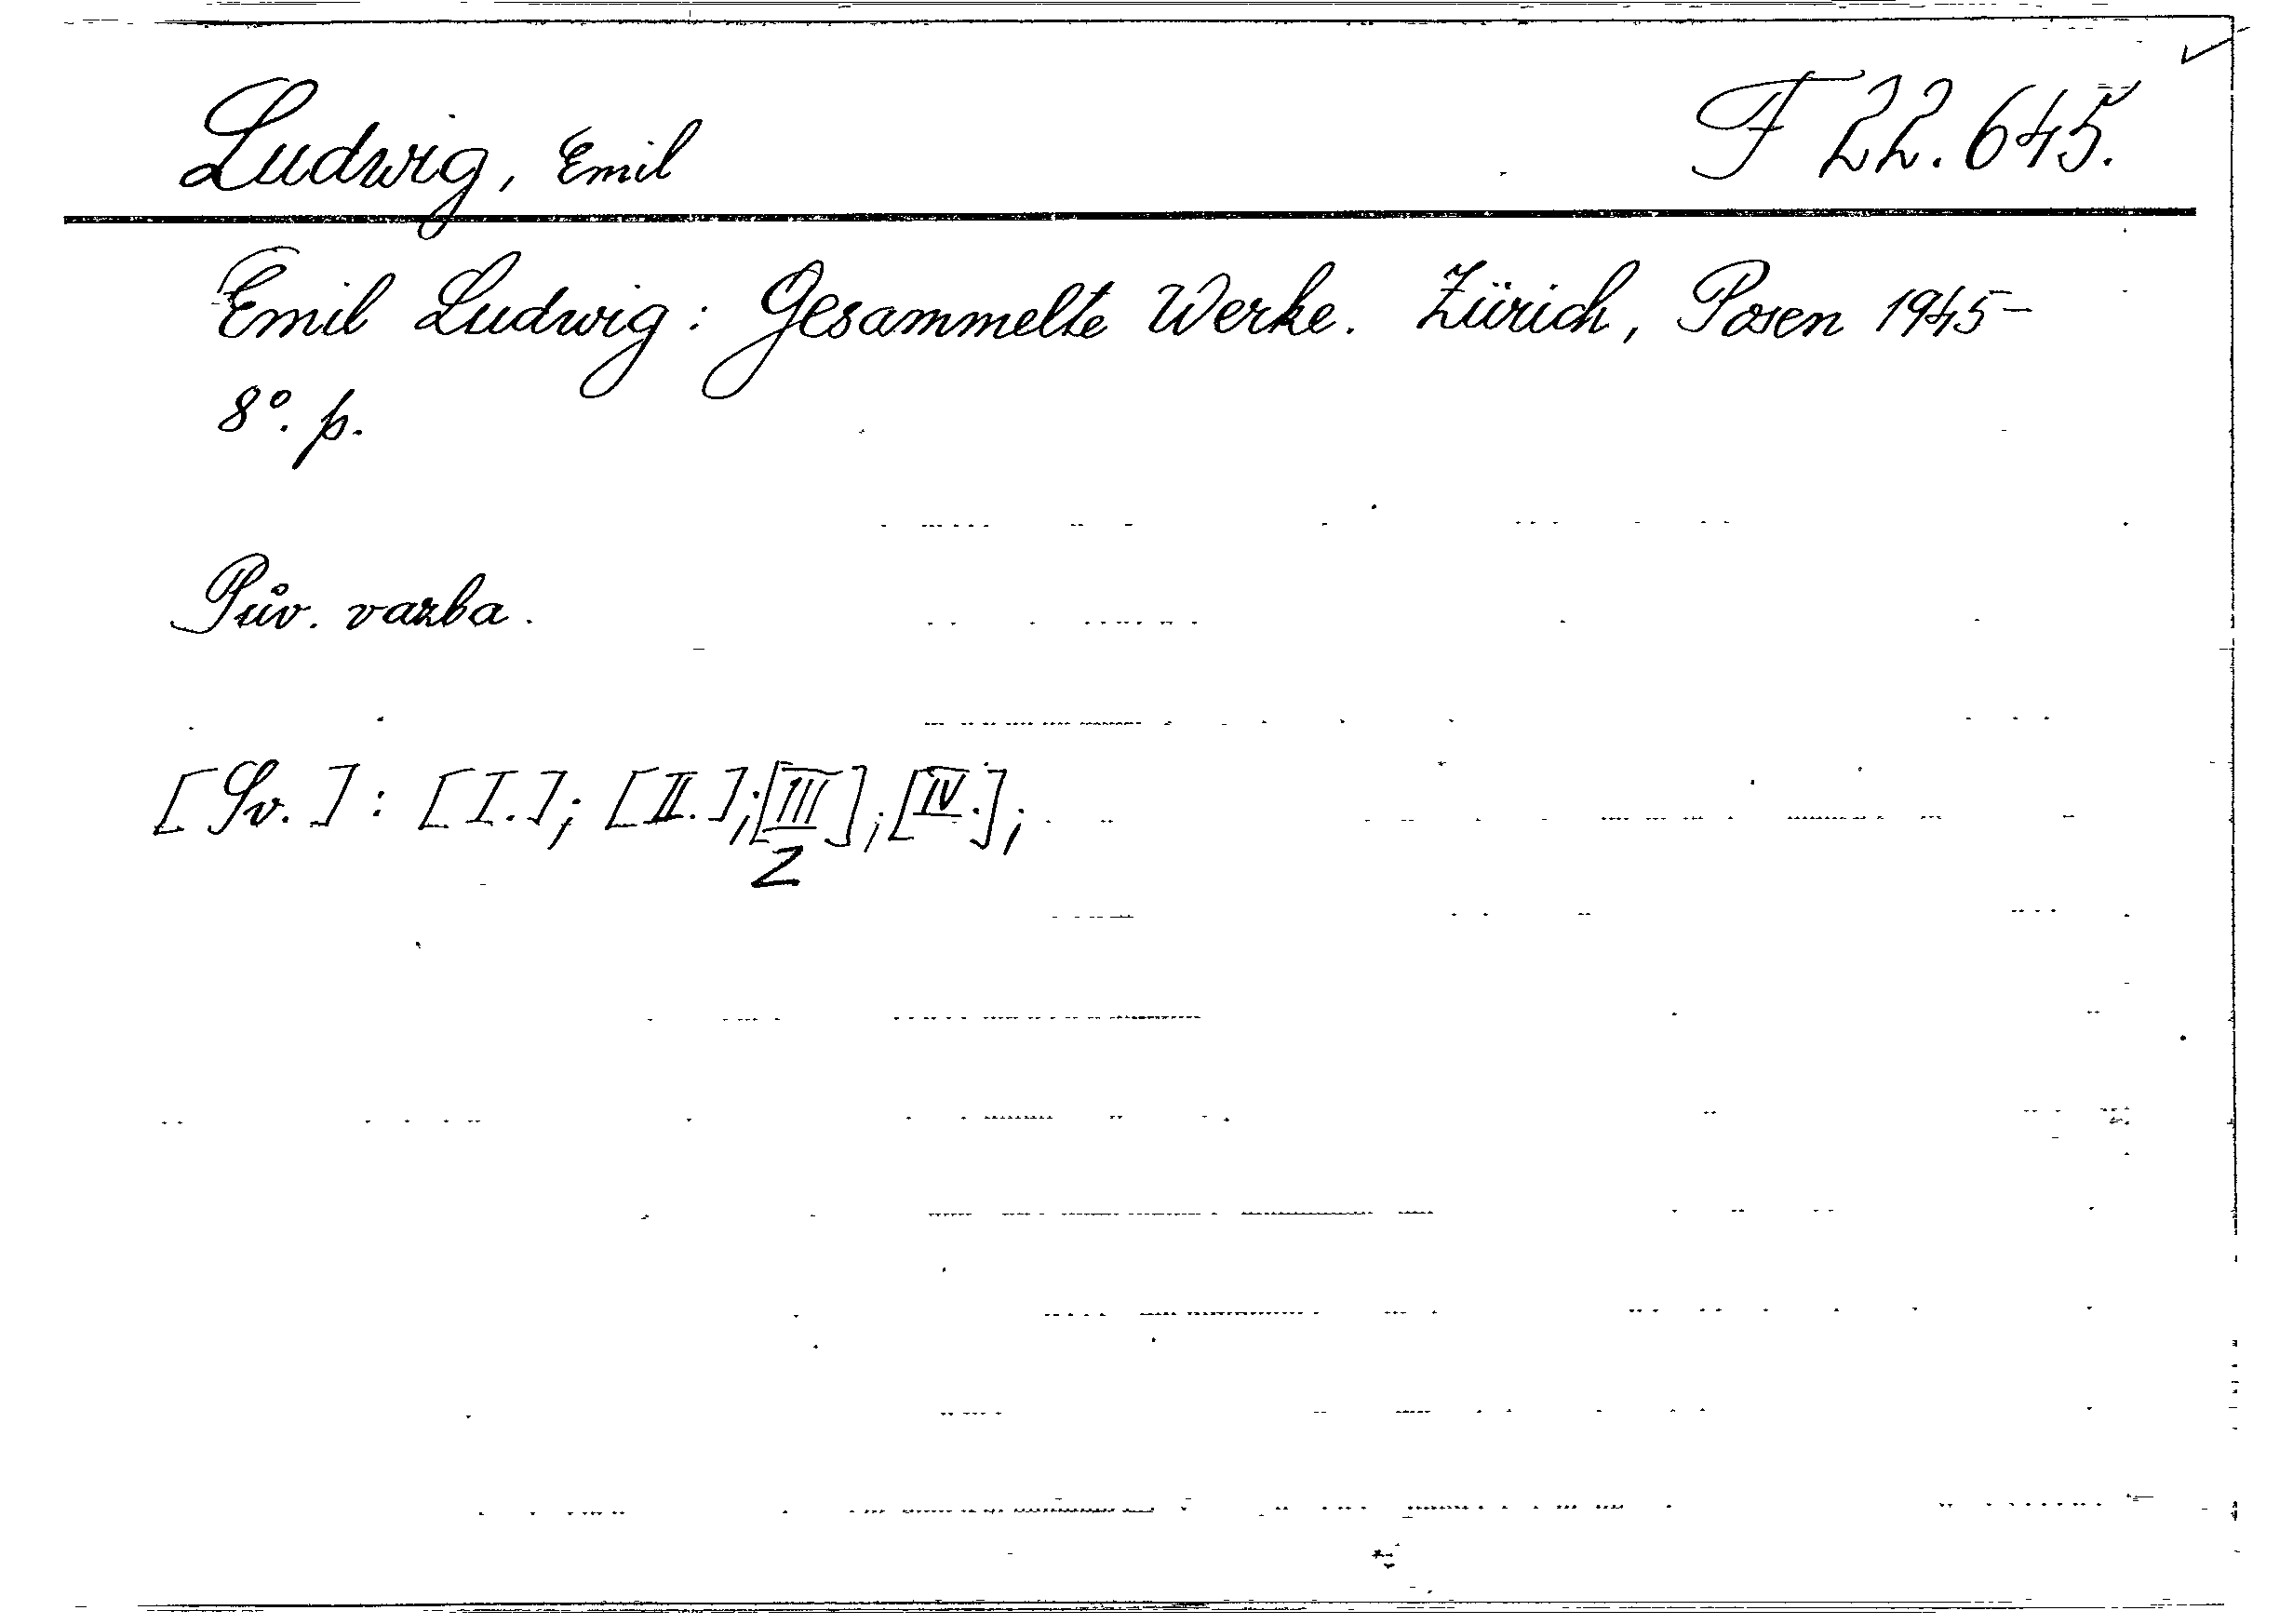 Ludwig, Emil F 22.645.
Emil Ludwig: Gesammelte Werke. Zürich, Posen 1945-
8°. p.
Pův. vazba.
[Sv.]: [I.]; [II.]; [III]; [IV.];
Z